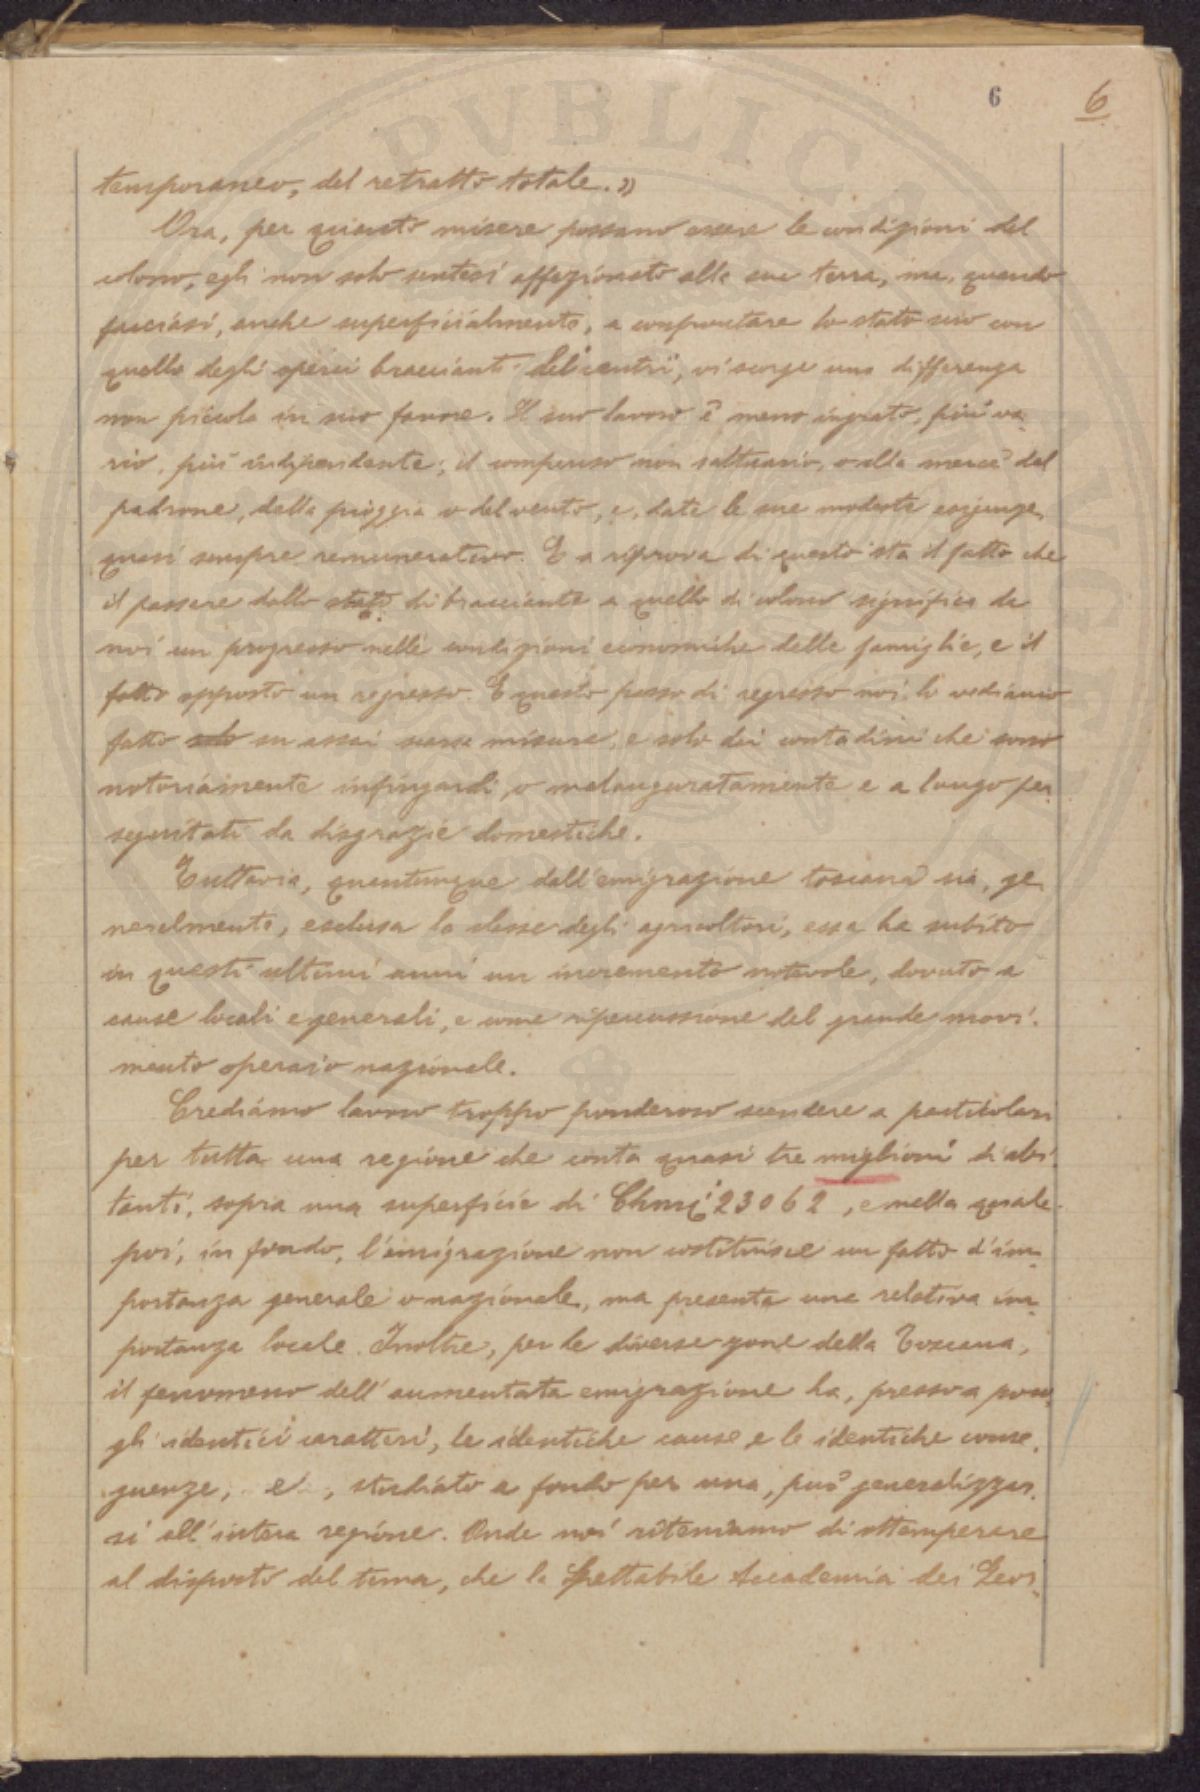 6 6
temporaneo, del retratto totale.»
Ora, per quanto misere possano essere le condizioni del
colono, egli non solo sentesi affezionato alla sua terra, ma, quando
facciasi, anche superficialmente, a confrontare lo stato suo con
quello degli operai braccianti dei centri, vi scorge una differenza
non piccola in suo favore. Il suo lavoro è meno ingrato, più va-
rio, più indipendente; il compenso non saltuario, o alla mercè del
padrone, della pioggia o del vento, e, date le sue modeste esigenze,
quasi sempre remunerativo. E a riprova di questo sta il fatto che
il passare dallo stato di bracciante a quello di colono significa da
noi un progresso nelle condizioni economiche delle famiglie, e il
fatto opposto un regresso. E questo passo di regresso noi lo vediamo
fatto solo in assai scarsa misura, e solo dai contadini che sono
notoriamente infingardi, o malauguratamente e a lungo per-
seguitati da disgrazie domestiche.
Tuttavia, quantunque dall'emigrazione toscana sia, ge-
neralmente, esclusa la classe degli agricoltori, essa ha subito
in questi ultimi anni un incremento notevole, dovuto a
cause locali e generali, e come ripercussione del grande movi-
mento operaio nazionale.
Crediamo lavoro troppo ponderoso scendere a particolari
per tutta una regione che conta quasi tre miglioni di abi-
tanti, sopra una superficie di Chmq. 23062, e nella quale
poi, in fondo, l'emigrazione non costituisce un fatto d'im-
portanza generale o nazionale, ma presenta una relativa im-
portanza locale. Inoltre, per le diverse zone della Toscana,
il fenomeno dell'aumentata emigrazione ha, presso a poco,
gli identici caratteri, le identiche cause e le identiche conse-
guenze, e, studiato a fondo per una, può generalizzar-
si all'intera regione. Onde noi riteniamo di ottemperare
al disposto del tema, che la Spettabile Accademia dei Geor-